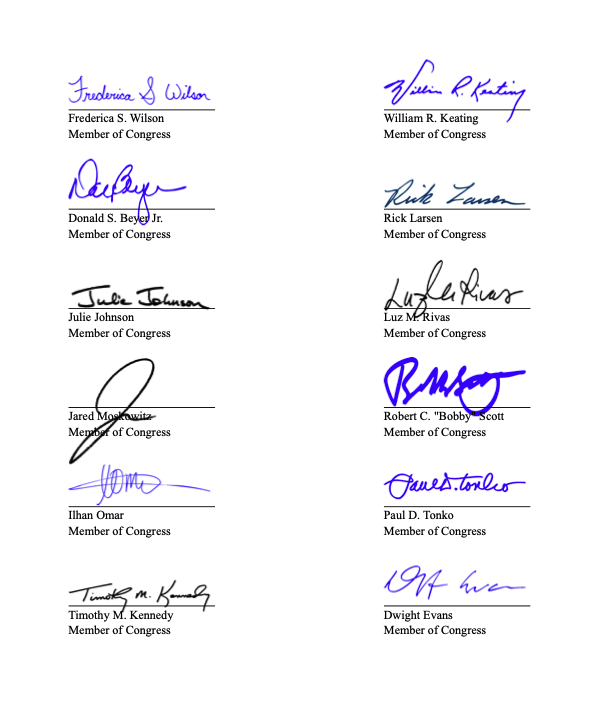 Frederica S Wilson
Frederica S. Wilson
Member of Congress
William R. Keating
William R. Keating
Member of Congress
Don Beyer
Donald S. Beyer Jr.
Member of Congress
Rick Larsen
Rick Larsen
Member of Congress
Julie Johnson
Julie Johnson
Member of Congress
Luz Rivas
Luz M. Rivas
Member of Congress
Jared Moskowitz
Member of Congress
Robert C. "Bobby" Scott
Member of Congress
Ilhan Omar
Member of Congress
Paul D. Tonko
Paul D. Tonko
Member of Congress
Timothy M. Kennedy
Timothy M. Kennedy
Member of Congress
Dwight Evans
Member of Congress